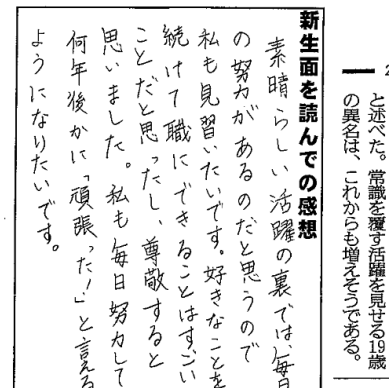 と述べた。常識を覆す活躍を見せる19歳
の異名は、これからも増えそうである。
新生面を読んでの感想
素晴らしい活躍の裏では、毎日
の努力があるのだと思うので
私も見習いたいです。好きなことを
続けて職にできることはすごい
ことだと思ったし、尊敬すると
思いました。私も毎日努力して
何年後かに「頑張った!」と言える
ようになりたいです。